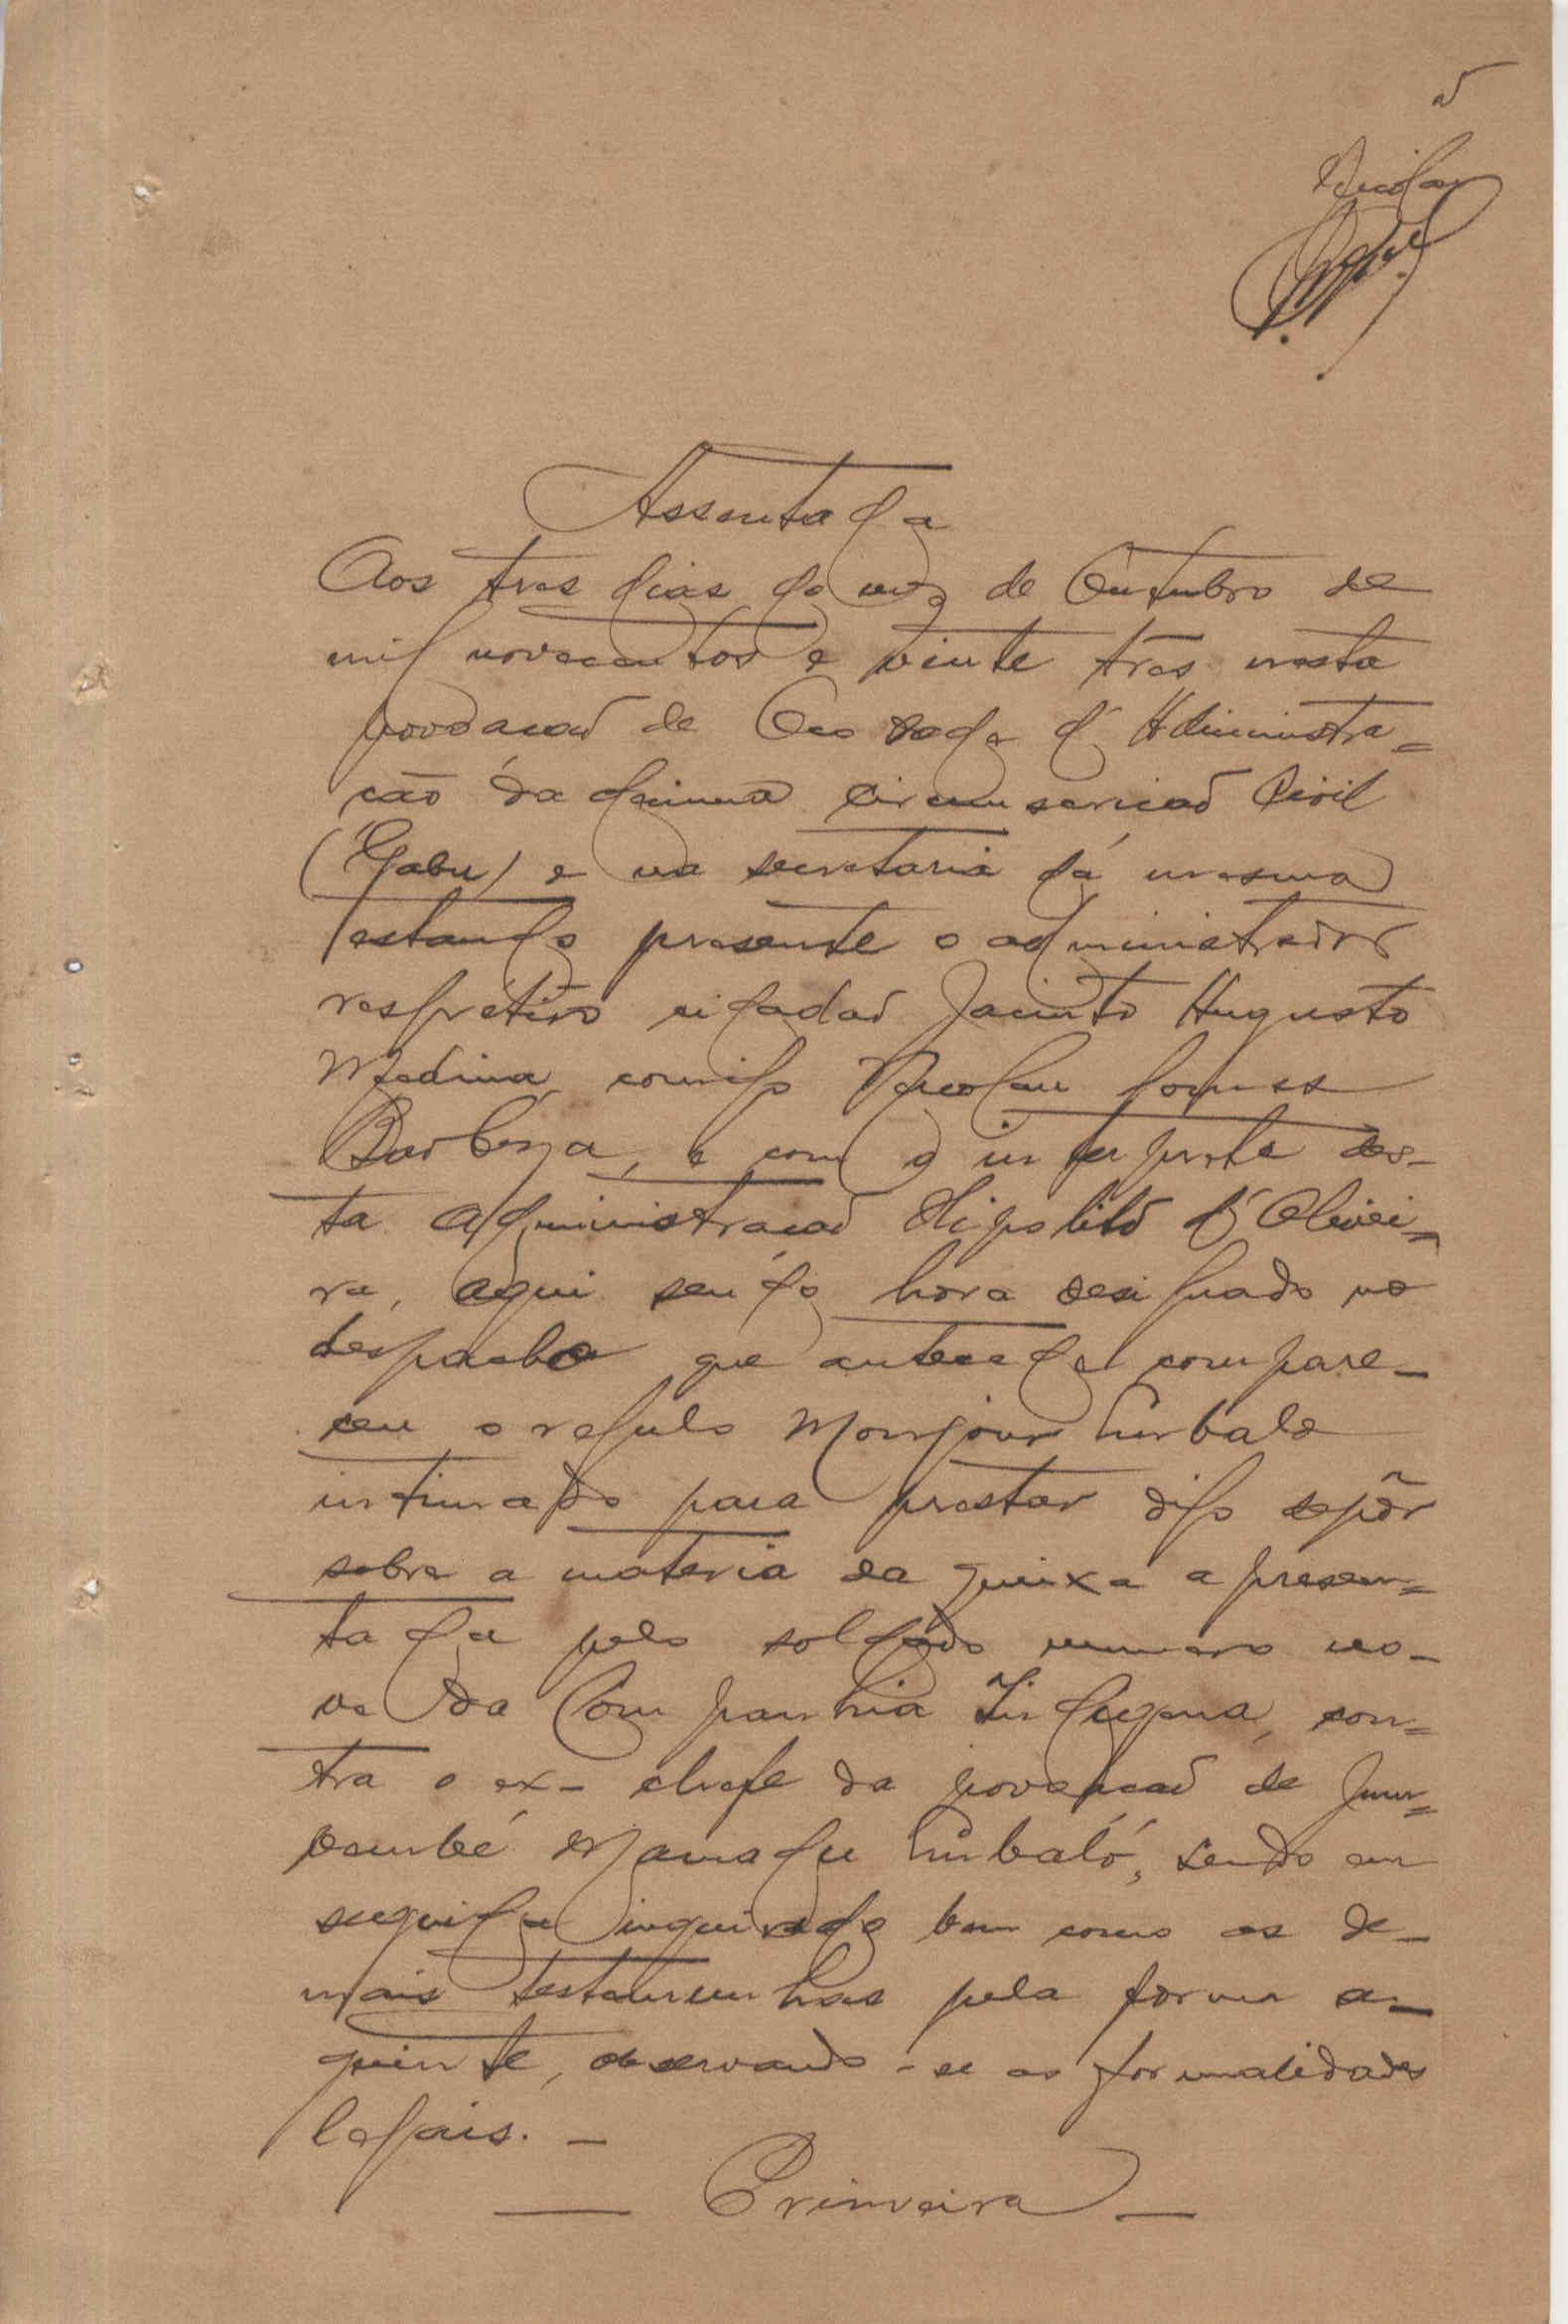 Nicolau
Assentada
Aos tres dias do mez de Outubro de
mil novecentos e vinte tres nesta
povoacaõ de Oco séde d'Administra=
cão da decima circumscricaõ Civil
(Gabu) e na secretaria dá mesma
estando presente o administrador
respétivo cidadaõ Jacinto Augusto
Medina, comigo Nicolau Gomes
Barboza, e com o interprete des-
ta administracaõ Hipolito d'Olivei=
ra, aqui sendo hora designado no
despacho que antecede compare-
ceu o regulo Monjour Embaló
intimado para prestar digo depôr
sobre a materia da queixa apresen=
tada pelo soldado numero no-
ve da Companhia Indigena, con=
tra o ex-chefe da povoacaõ de
Mamadu Embaló, sendo em
seguida inquirido bem como as de-
mais testemunhas pela forma se-
guinte, observando-se as formalidades
legais. -
— Primeira —